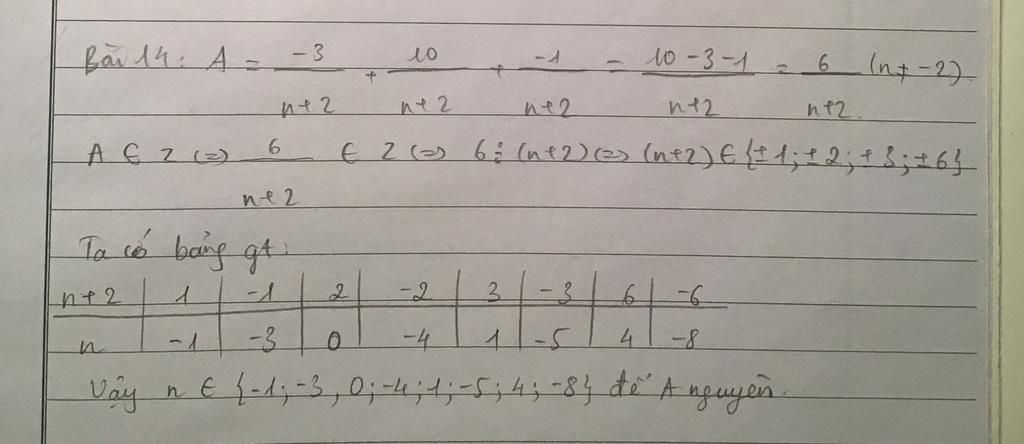 Bài 14: A = -3/(n+2) + 10/(n+2) + -1/(n+2) = (10-3-1)/(n+2) = 6/(n+2) (n≠-2).
A ∈ Z (=) 6/(n+2) ∈ Z (=) 6⋮(n+2) (=) (n+2) ∈ {±1; ±2; ±3; ±6}
Ta có bảng gt:
n+2 | 1 | -1 | 2 | -2 | 3 | -3 | 6 | -6
n | -1 | -3 | 0 | -4 | 1 | -5 | 4 | -8
Vậy n ∈ {-1; -3, 0; -4; 1; -5; 4; -8} để A nguyên.